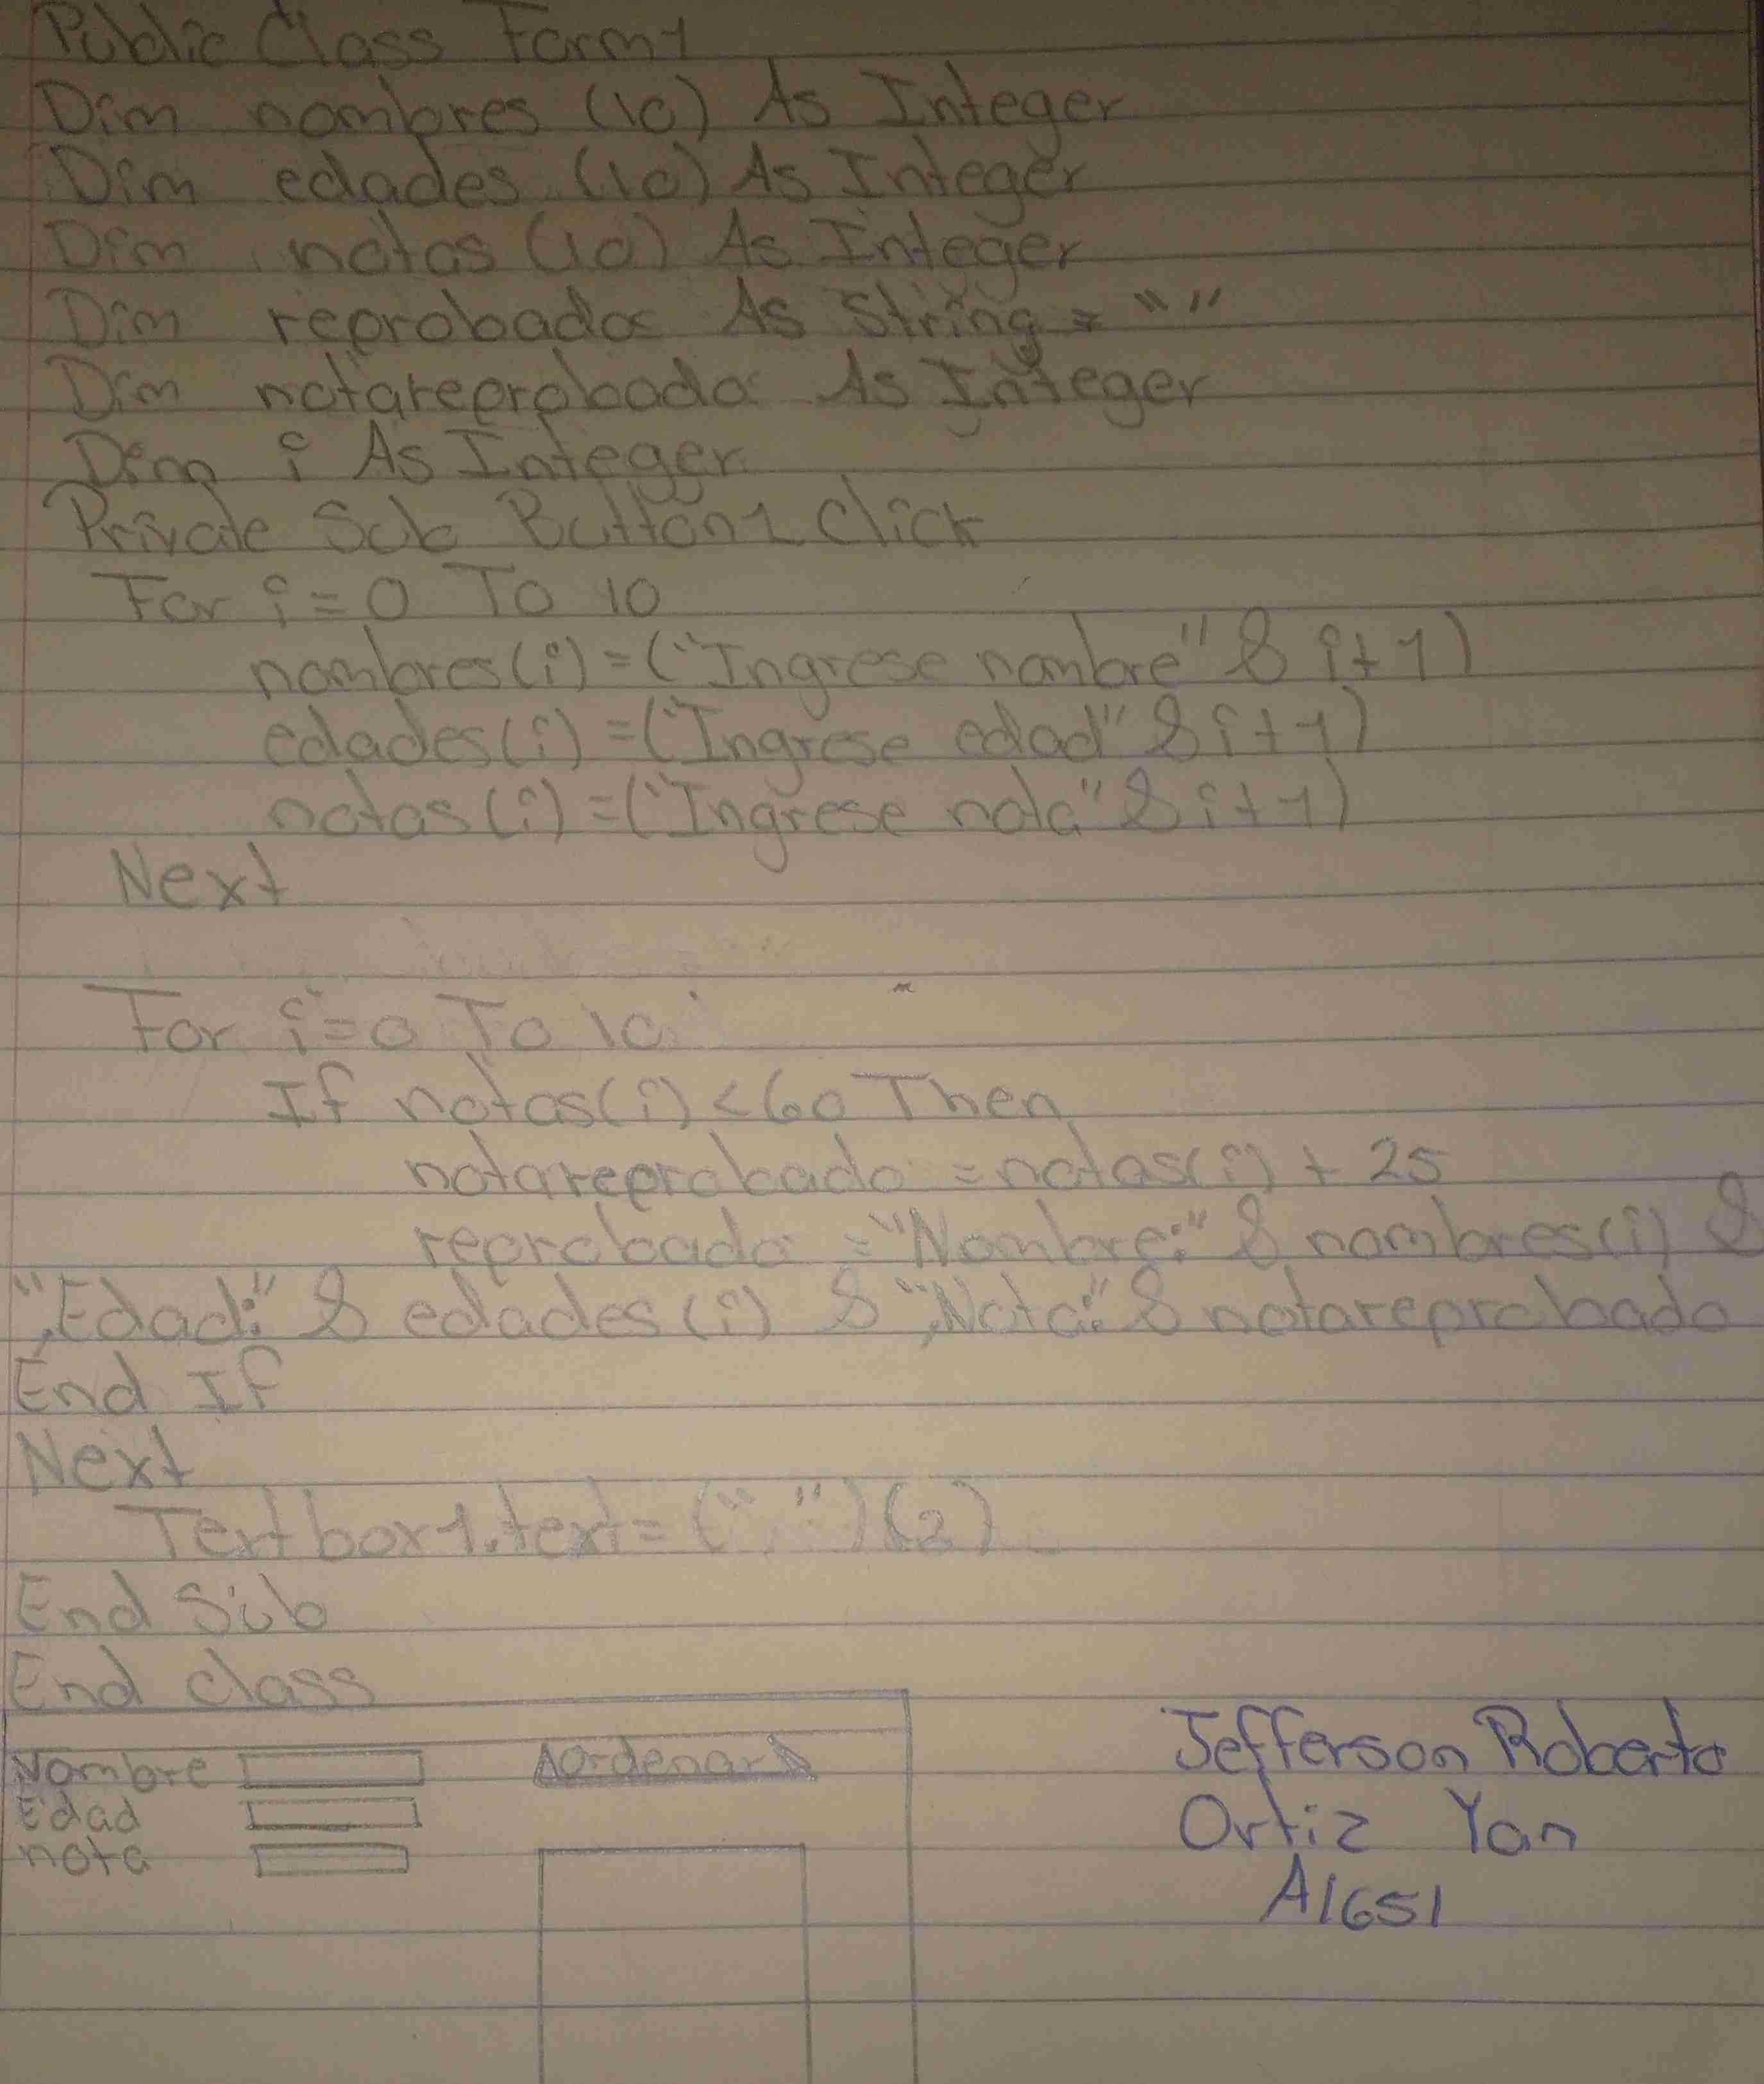 Public Class Form1
Dim nombres (10) As Integer
Dim edades (10) As Integer
Dim notas (10) As Integer
Dim reprobado As String = ""
Dim notareprobado As Integer
Dim i As Integer
Private Sub Button1 Click
For i=0 To 10
nombres(i) =("Ingrese nombre" & i+1)
edades(i) =("Ingrese edad" & i+1)
notas(i) =("Ingrese nota" & i+1)
Next
For i=0 To 10
If notas(i) <60 Then
notareprobado = notas(i) + 25
reprobado ="Nombre:" & nombres(i) &
",Edad:" & edades(i) & ",Nota:" & notareprobado
End If
Next
Textbox1.text= (" ")(2)
End Sub
End class
Nombre
Ordenar
Edad
nota
Jefferson Roberto
Ortiz Yan
A1651